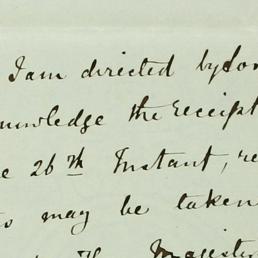 I am directed by Lor
nowledge the receipt
e 26th Instant, re
ts may be taken
The Magistr